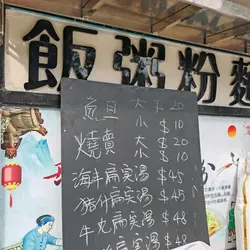 飯粥粉麵
魚旦 大 $20
小 $10
燒賣 大 $20
小 $10
海丰扁实湯 $45
猪什扁实湯 $45
牛丸扁实湯 $48
扁实湯 $48